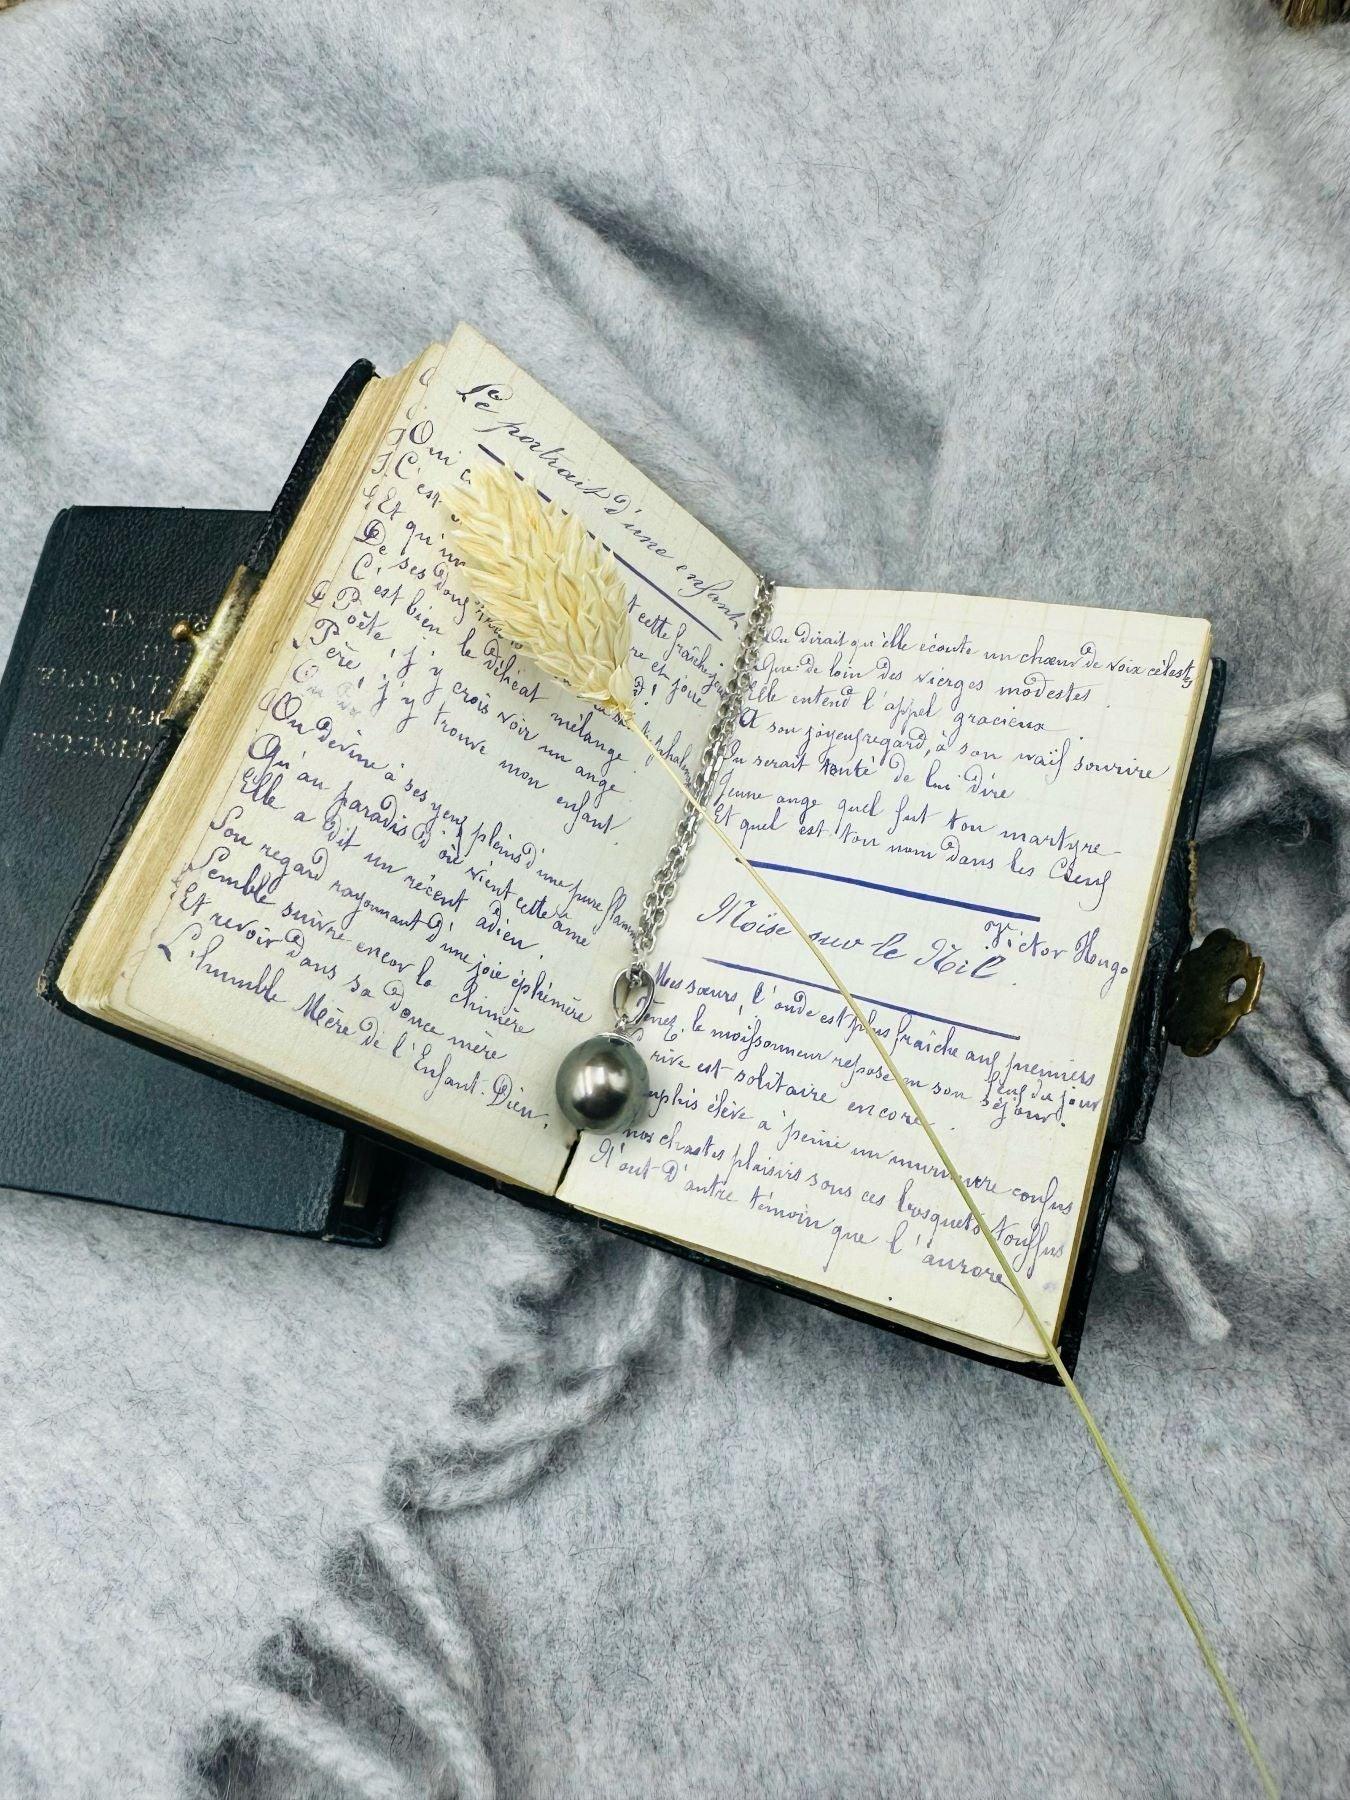 Le portrait d'une enfant
Oui c
cette fraîche joue
C'est
re et joue
Et qu'un
De ses doug
C'est bien le délicat mélange
Poète j'y crois voir un ange
Père, j'y trouve mon enfant.
On devine à ses yeux pleins d'une pure flamme
Qu'au paradis d'où vient cette âme
Elle a dit un récent adieu.
Son regard rayonnant d'une joie éphémère
Semble suivre encor la chimère
Et revoir dans sa douce mère
L'humble Mère de l'Enfant-Dieu.
On dirait qu'elle écoute un chœur de voix célestes
Que de loin des vierges modestes
Elle entend l'appel gracieux
A son joyeux regard, à son naïf sourire
On serait tenté de lui dire
Jeune ange quel fut ton martyre
Et quel est ton nom dans les Cieux
Victor Hugo
Moïse sur le Nil.
Mes sœurs, l'onde est plus fraîche aux premiers
feux du jour
nez, le moissonneur repose en son séjour.
rive est solitaire encore.
mphis élève à peine un murmure confus
nos chastes plaisirs sous ces bosquets touffus
N'ont d'autre témoin que l'aurore